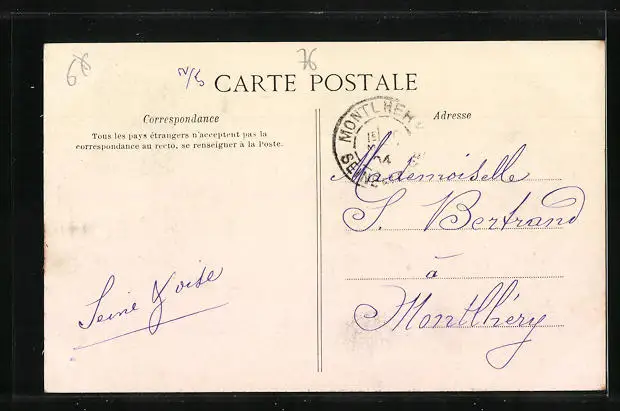 76
CARTE POSTALE
Correspondance
Tous les pays étrangers n'acceptent pas la
correspondance au recto, se renseigner à la Poste.
Adresse
MONTLHERY
SEINE
04
Mademoiselle
S. Bertrand
à
Montlhéry
Seine & oise